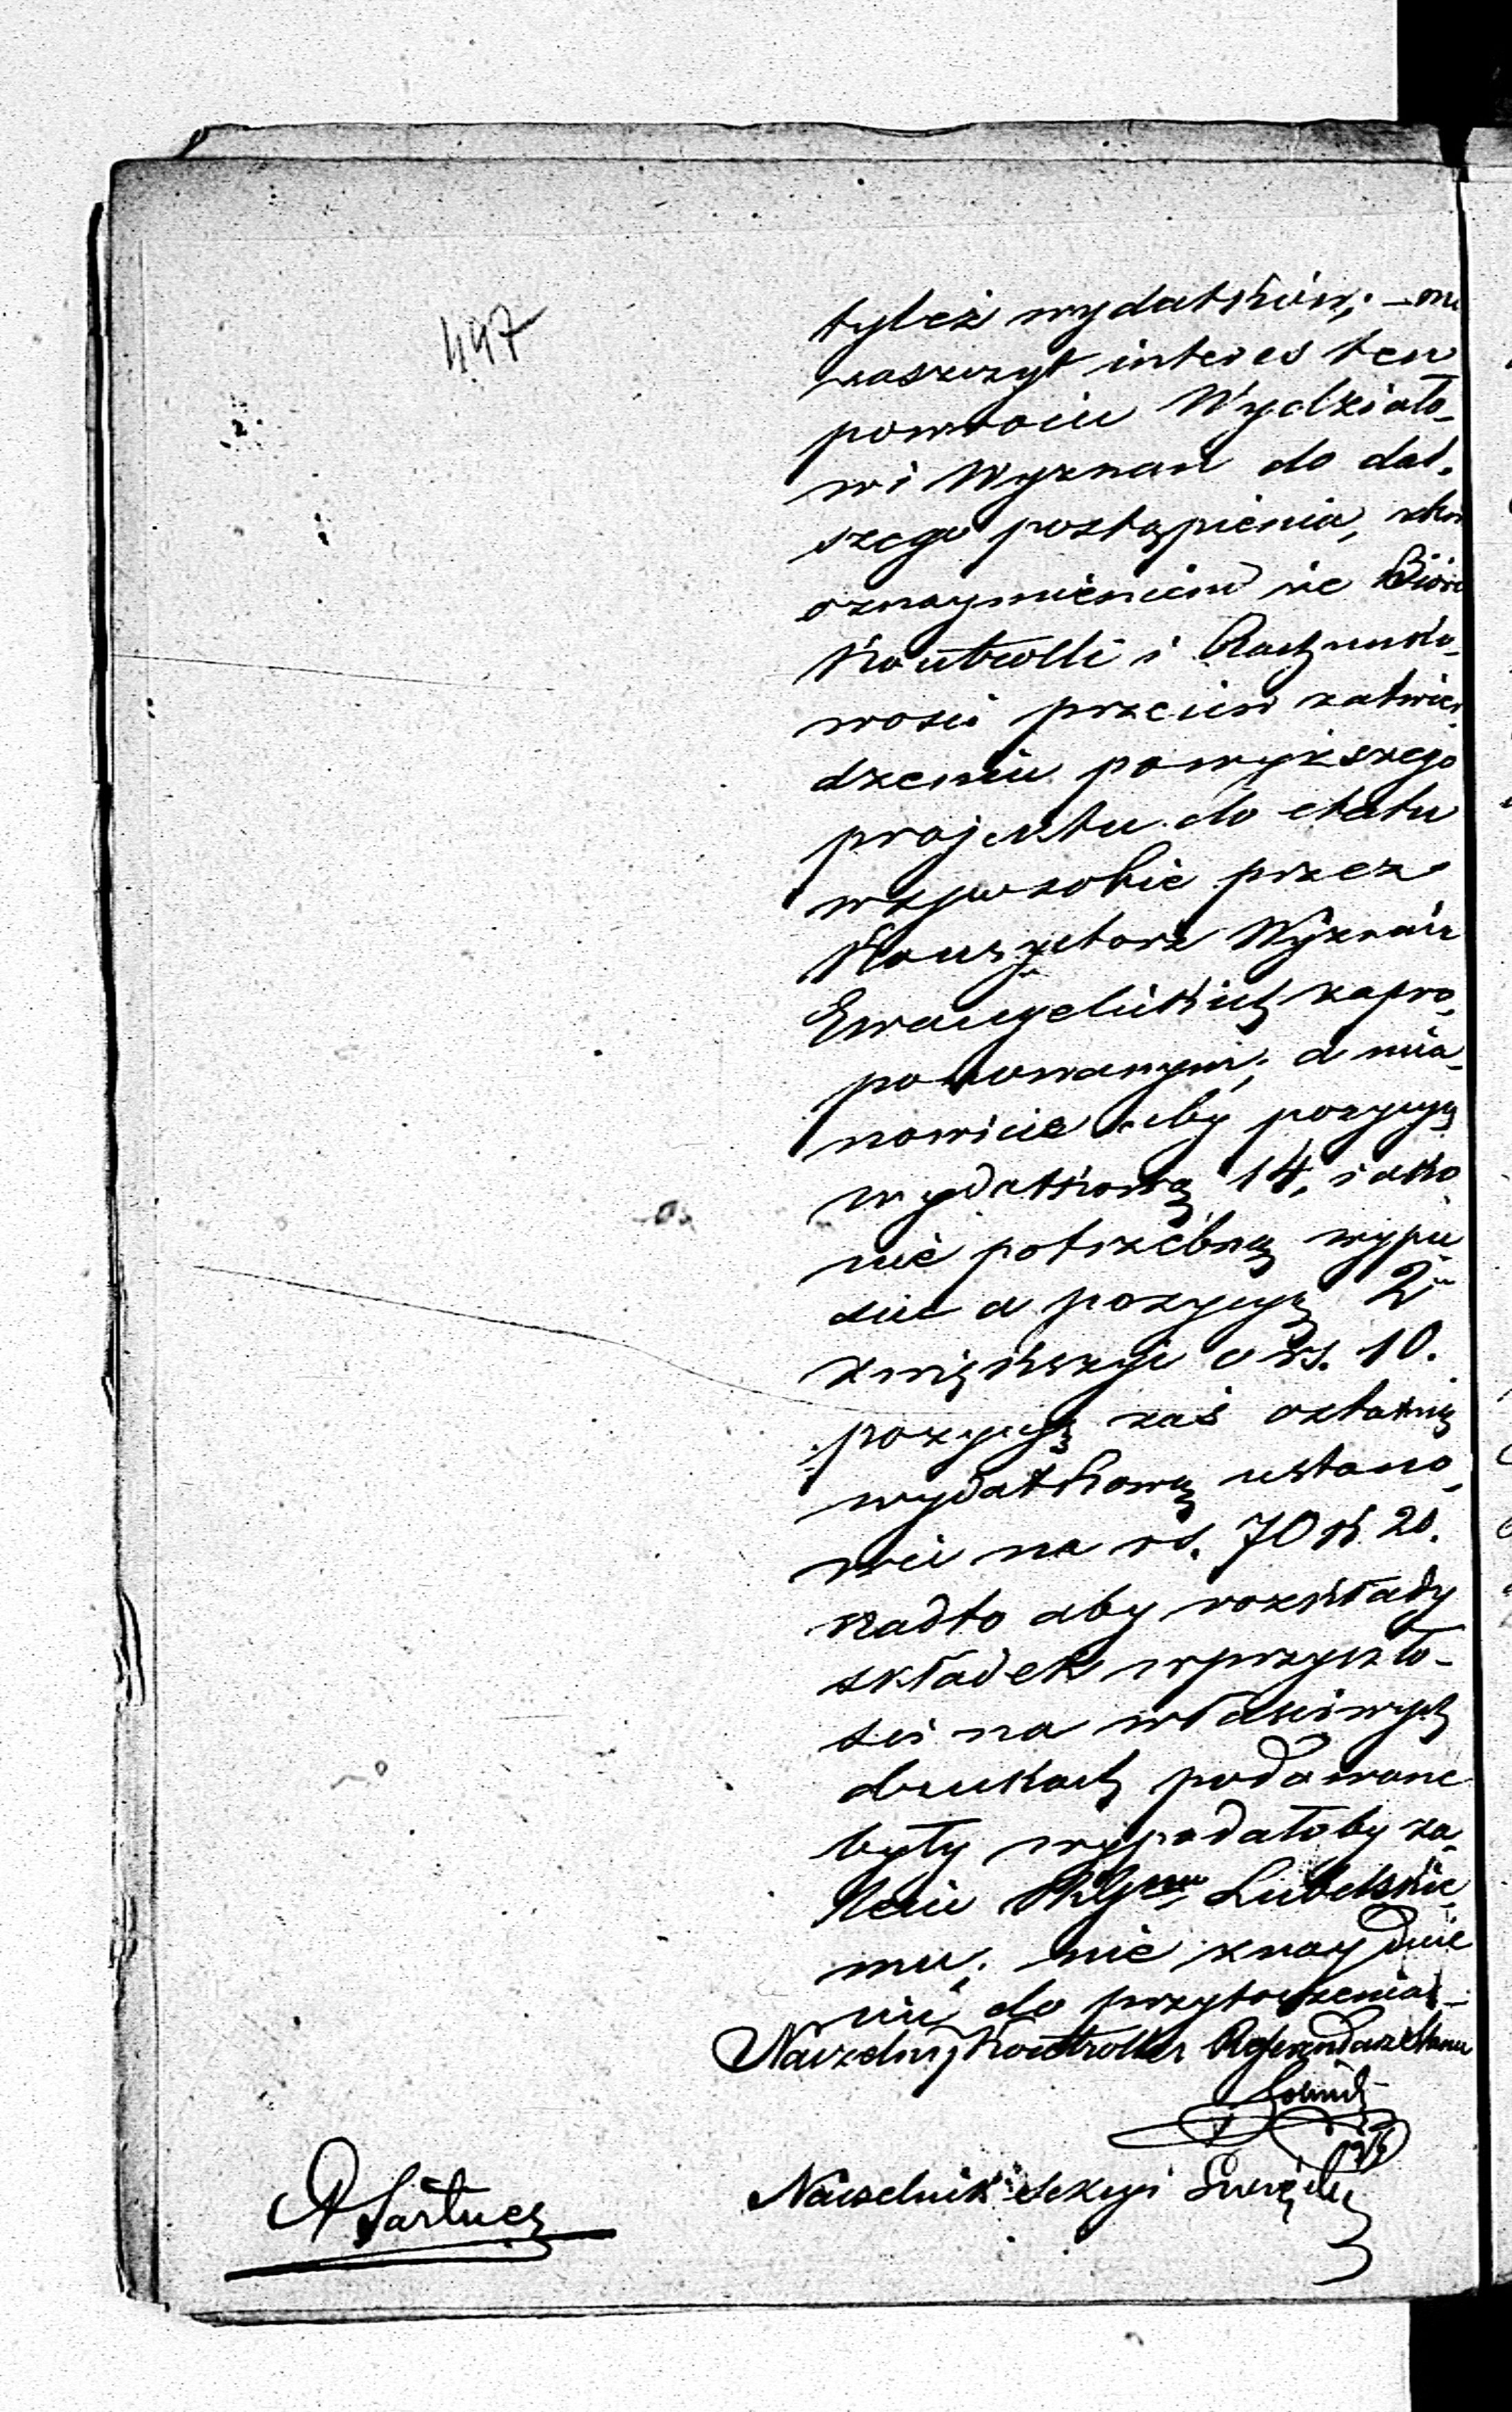 497
tyleż wydatków; – ma
zaszczyt interes ten
powrócić Wydziało-
wi Wyznań do dal-
szego postąpienia, z
oznaymieniem że Biuro
Kontrolli i Rachunko-
wości przeciw zatwier-
dzeniu powyższego
projektu do etatu
w sposobie przez
Konsystorz Wyznań
Ewangelickich zapro-
ponowanym; a mia-
nowicie aby pozycyą
wydatkową 14, jako
nie potrzebną wypu-
ścić a pozycyą 2
zwiększyć o rs. 10.
pozycyą zaś ostatnią
wydatkową ustano-
wić na rs. 70 k 20.
nadto aby rozkłady
składek w przyszło-
ści na właściwych
drukach podawane
były wypadałoby za-
lecić Lubelskie-
mu; nie znayduie
nic do przytoczenia –
Naczelny Kontroller
Naczelnik Sekcyi